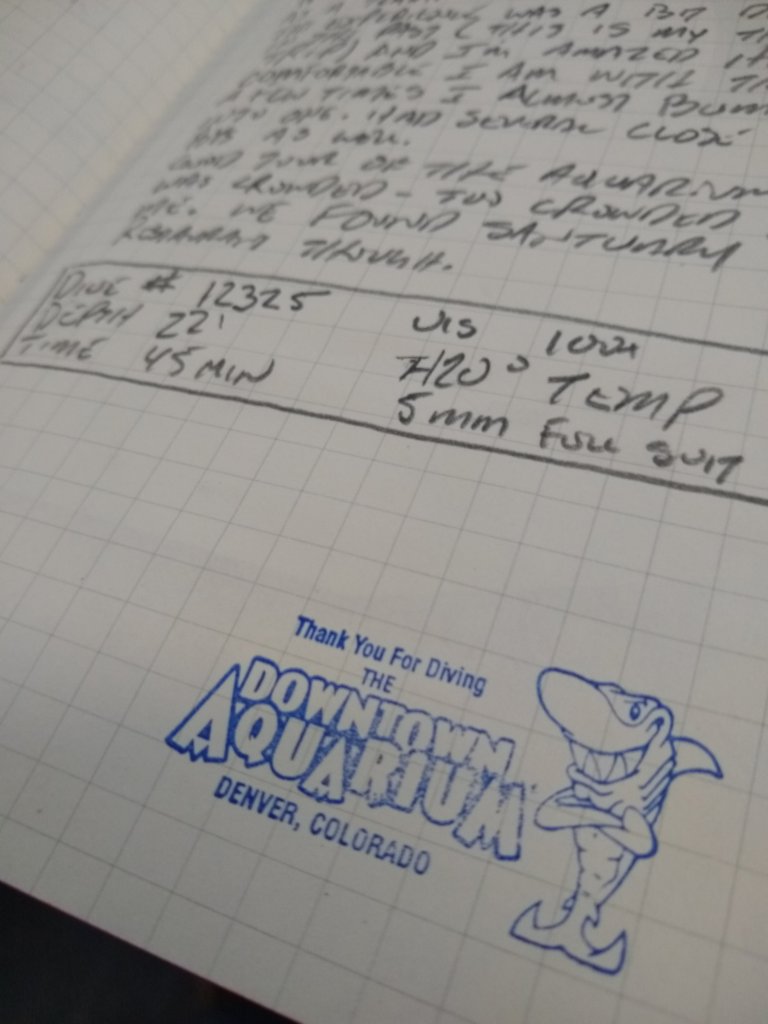 WAS A BIT
PAST (THIS IS MY
AND I'M AMAZED
COMFORTABLE I AM WITH
A FEW TIMES I ALMOST BUM
INTO ONE. HAD SEVERAL CLOSE
AS WELL.
TOUR OF THE AQUARIUM
WAS CROWDED - TOO CROWDED
ME. WE FOUND SANTUARY
THOUGH.
DIVE # 12325
DEPTH 22'
TIME 45 MIN
VIS
H20° TEMP
5mm FULL SUIT
Thank You For Diving
THE
DOWNTOWN
AQUARIUM
DENVER, COLORADO